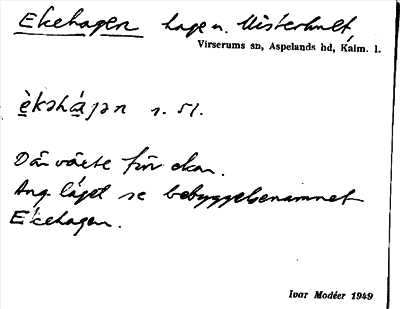 Ekehagen hage n. Misterhult,
Virserums sn, Aspelands hd, Kalm. l.
èkɔháɟən s. 51.
Där växte förr ekar.
Ang. läget se bebyggelsenamnet
Ekehagen.
Ivar Modéer 1949